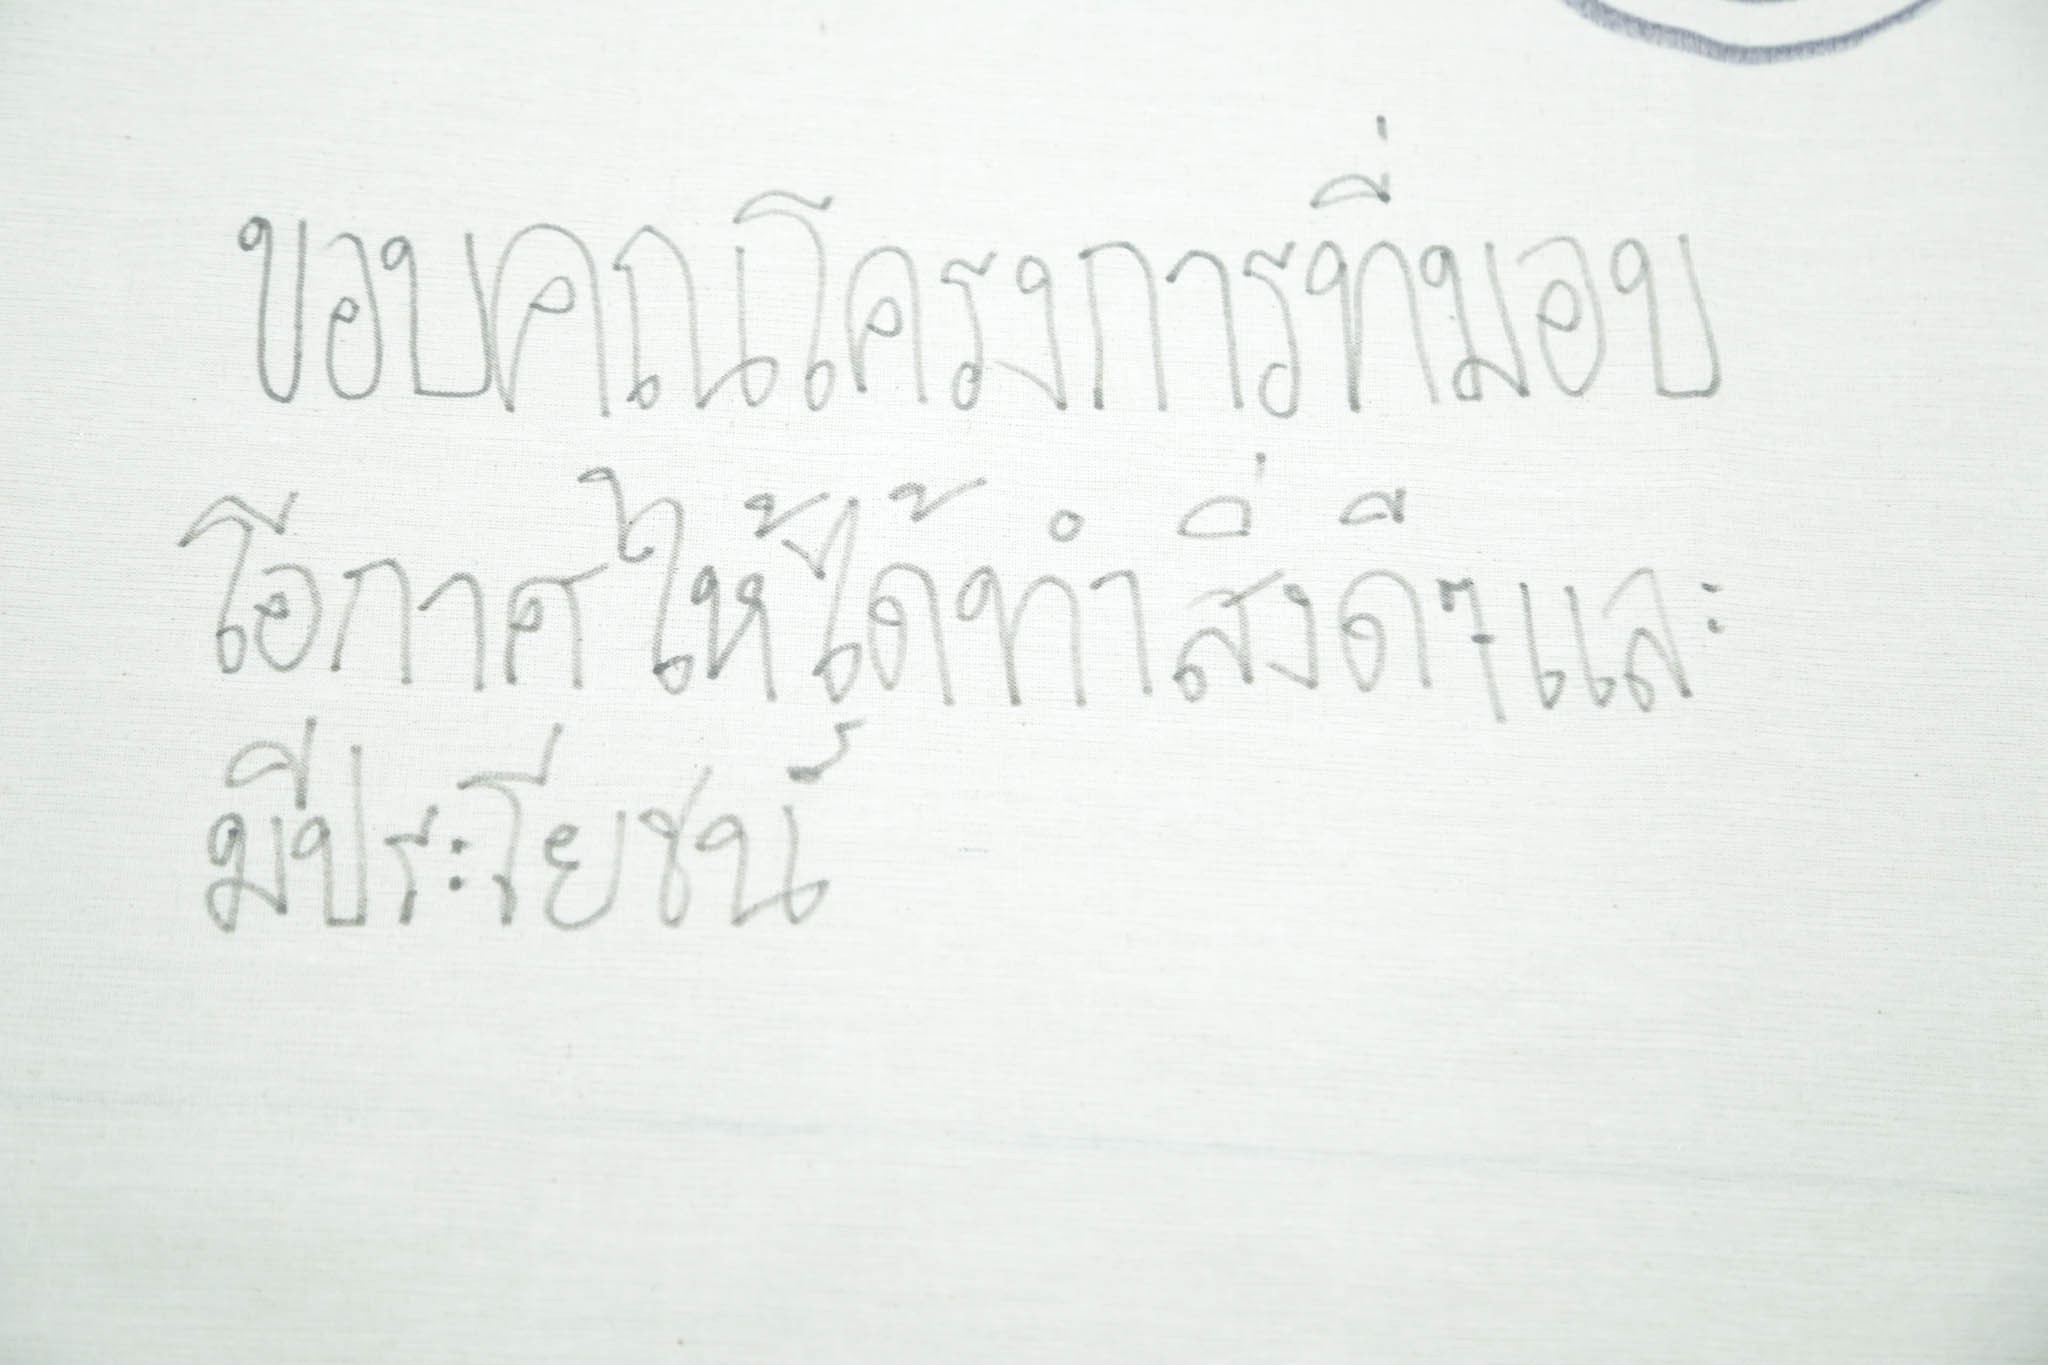 ขอบคณโครงการที่มอบ
โอกาศให้ได้ทำสิ่งดีๆและ
มีประโยชน์